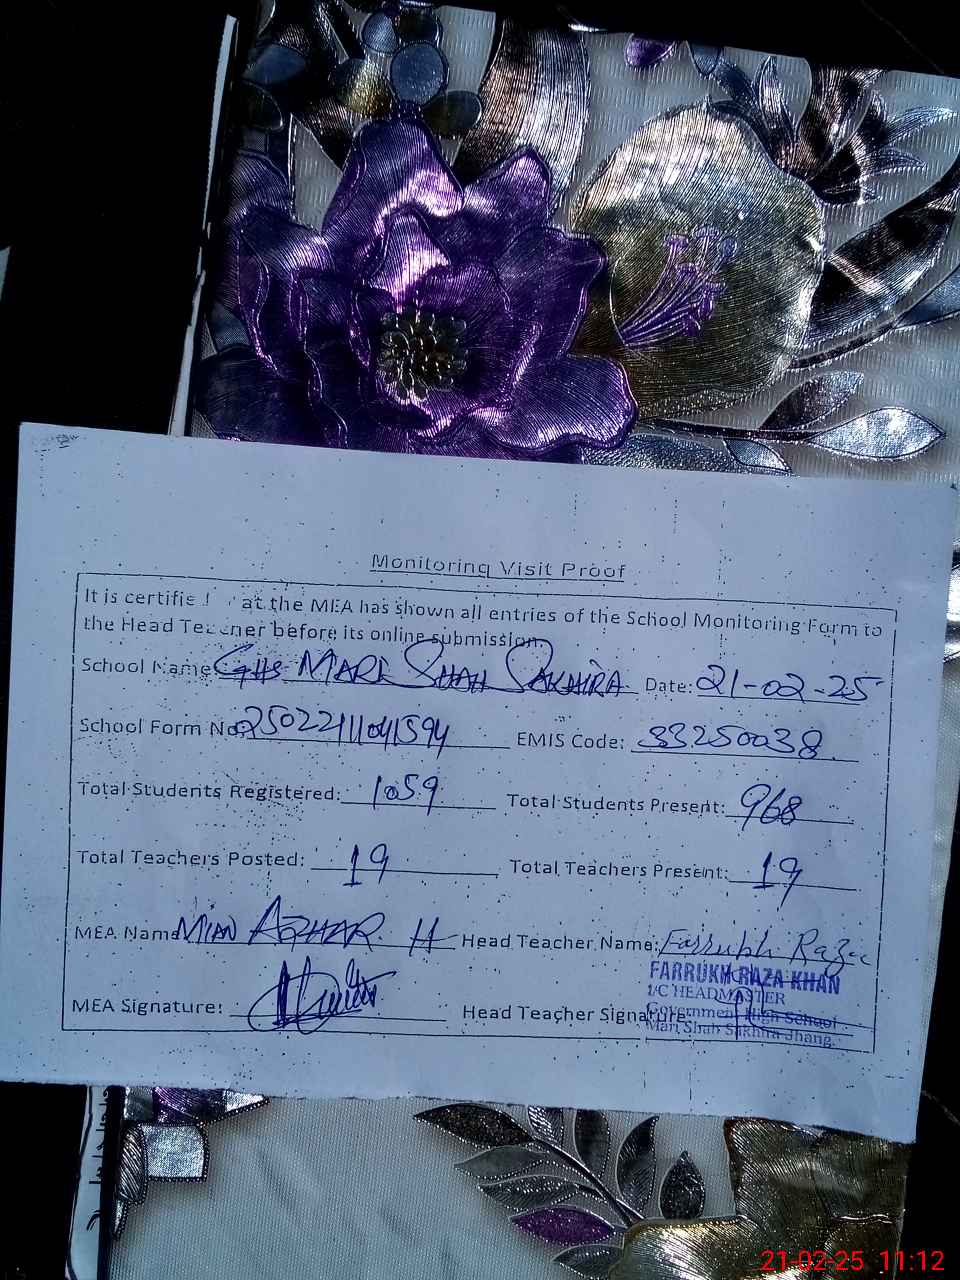 Monitoring Visit Proof
It is certifie at the MEA has shown all entries of the School Monitoring Form to
the Head Teacher before its online submission.
School Name GHS MARI SHAH SAKHIRA Date: 21-02-25
School Form No. EMIS Code: 33250038
Total Students Registered: 1059 Total Students Present: 968
Total Teachers Posted: 19 Total Teachers Present: 19
MEA Name MIAN AZHAR H Head Teacher Name: Farrukh Raza
FARRUKH RAZA KHAN
I/C HEADMASTER
MEA Signature: Head Teacher Signature
Government High School
Mari Shah Sakhira Jhang.
21-02-25 11:12